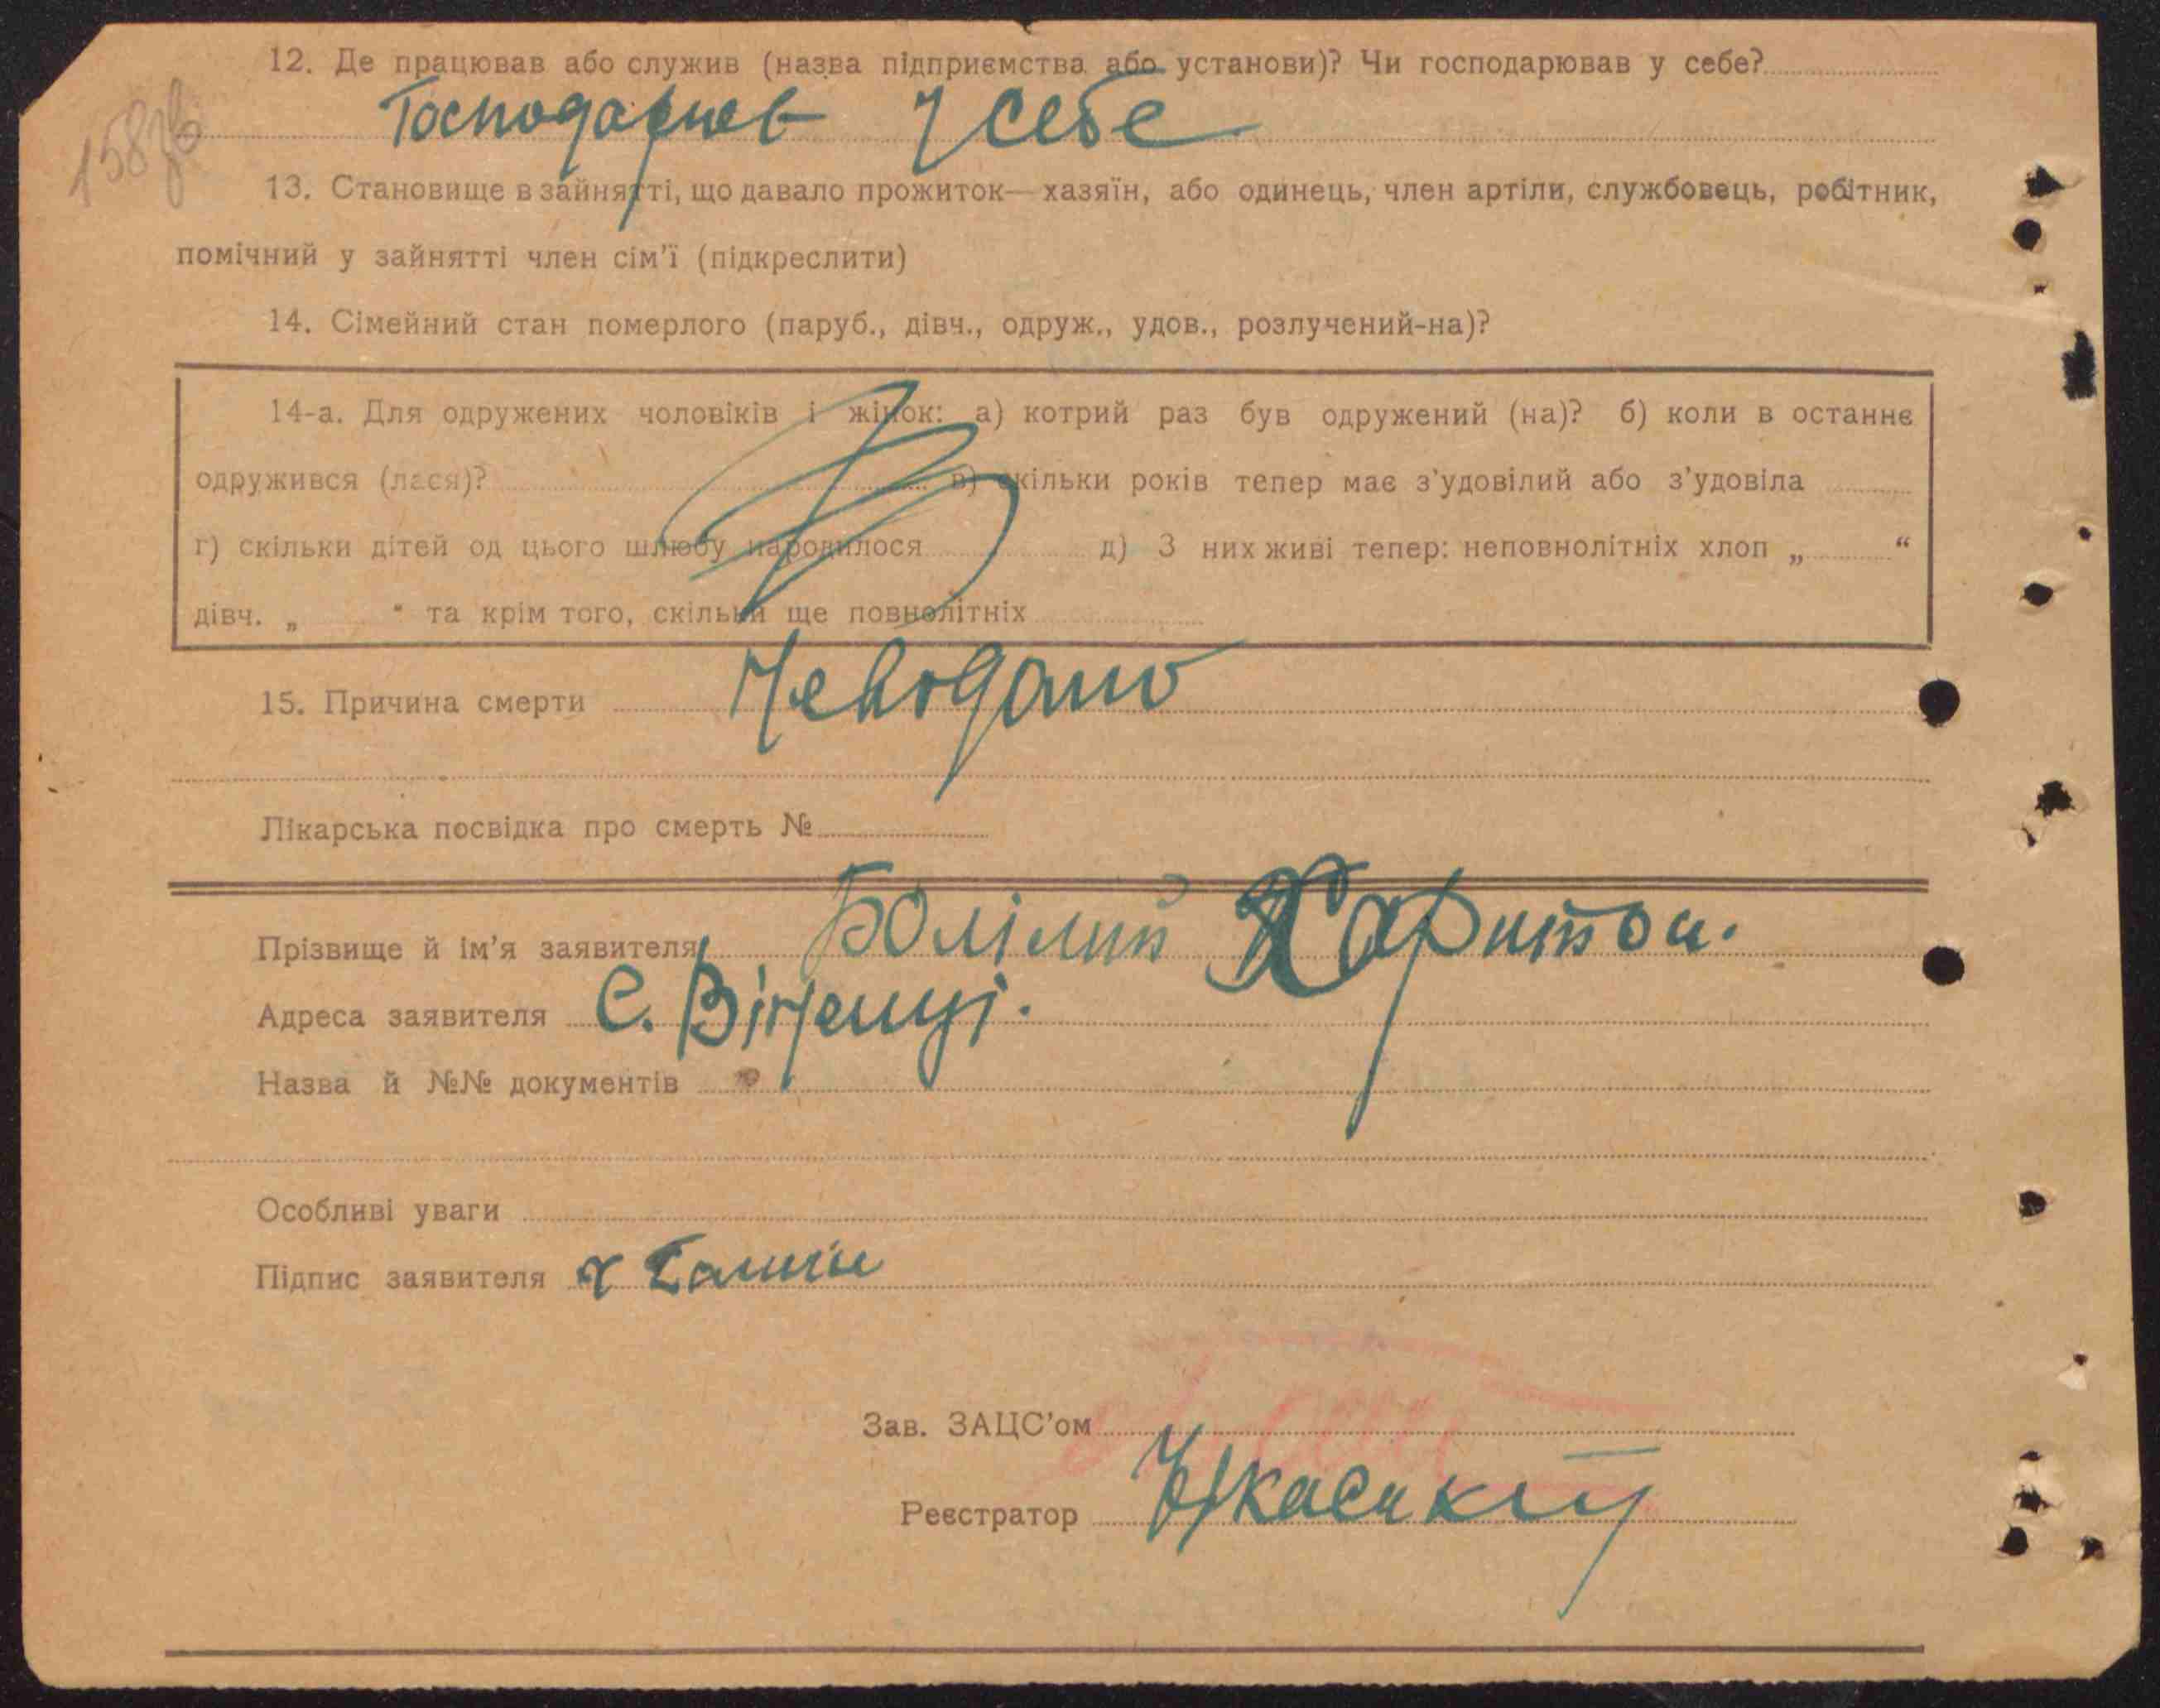 158зв
12. Де працював або служив (назва підприємства або установи)? Чи господарював у себе?
у себе
13. Становище в зайнятті, що давало прожиток — хазяїн, або одинець, член артіли, службовець, робітник,
помічний у зайнятті член сім'ї (підкреслити)
14. Сімейний стан померлого (паруб., дівч., одруж., удов., розлучений-на)?
14-а. Для одружених чоловіків і жінок: а) котрий раз був одружений (на)? б) коли в останнє
одружився (лася)? в) скільки років тепер має з'удовілий або з'удовіла
г) скільки дітей од цього шлюбу народилося д) З них живі тепер: неповнолітніх хлоп „ “
дівч. „ “ та крім того, скільки ще повнолітніх
15. Причина смерти
Лікарська посвідка про смерть №
Прізвище й ім'я заявителя Харитон.
Адреса заявителя С.
Назва й №№ документів
Особливі уваги
Підпис заявителя
Зав. ЗАЦС'ом
Реєстратор